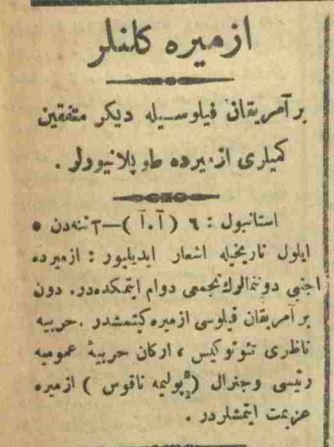 ازمیره کلنلر
بر آمریقان فیلوسیله دیکر متفقین
کمیلری ازمیرده طوپلانیورلر .
استانبول : ٦ ( آ . آ ) — آتنه‌دن ٥
ایلول تاریخیله اشعار ایدیلیور : ازمیرده
اجنبی دوننمالرک تجمعی دوام ایتمکده‌در. دون
بر آمریقان فیلوسی ازمیره کیتمشدر . حربیه
ناظری تئوتوکیس ، ارکان حربیهٔ عمومیه
رئیسی وجنرال ( پولیمه ناقوس ) ازمیره
عزیمت ایتمشلردر .